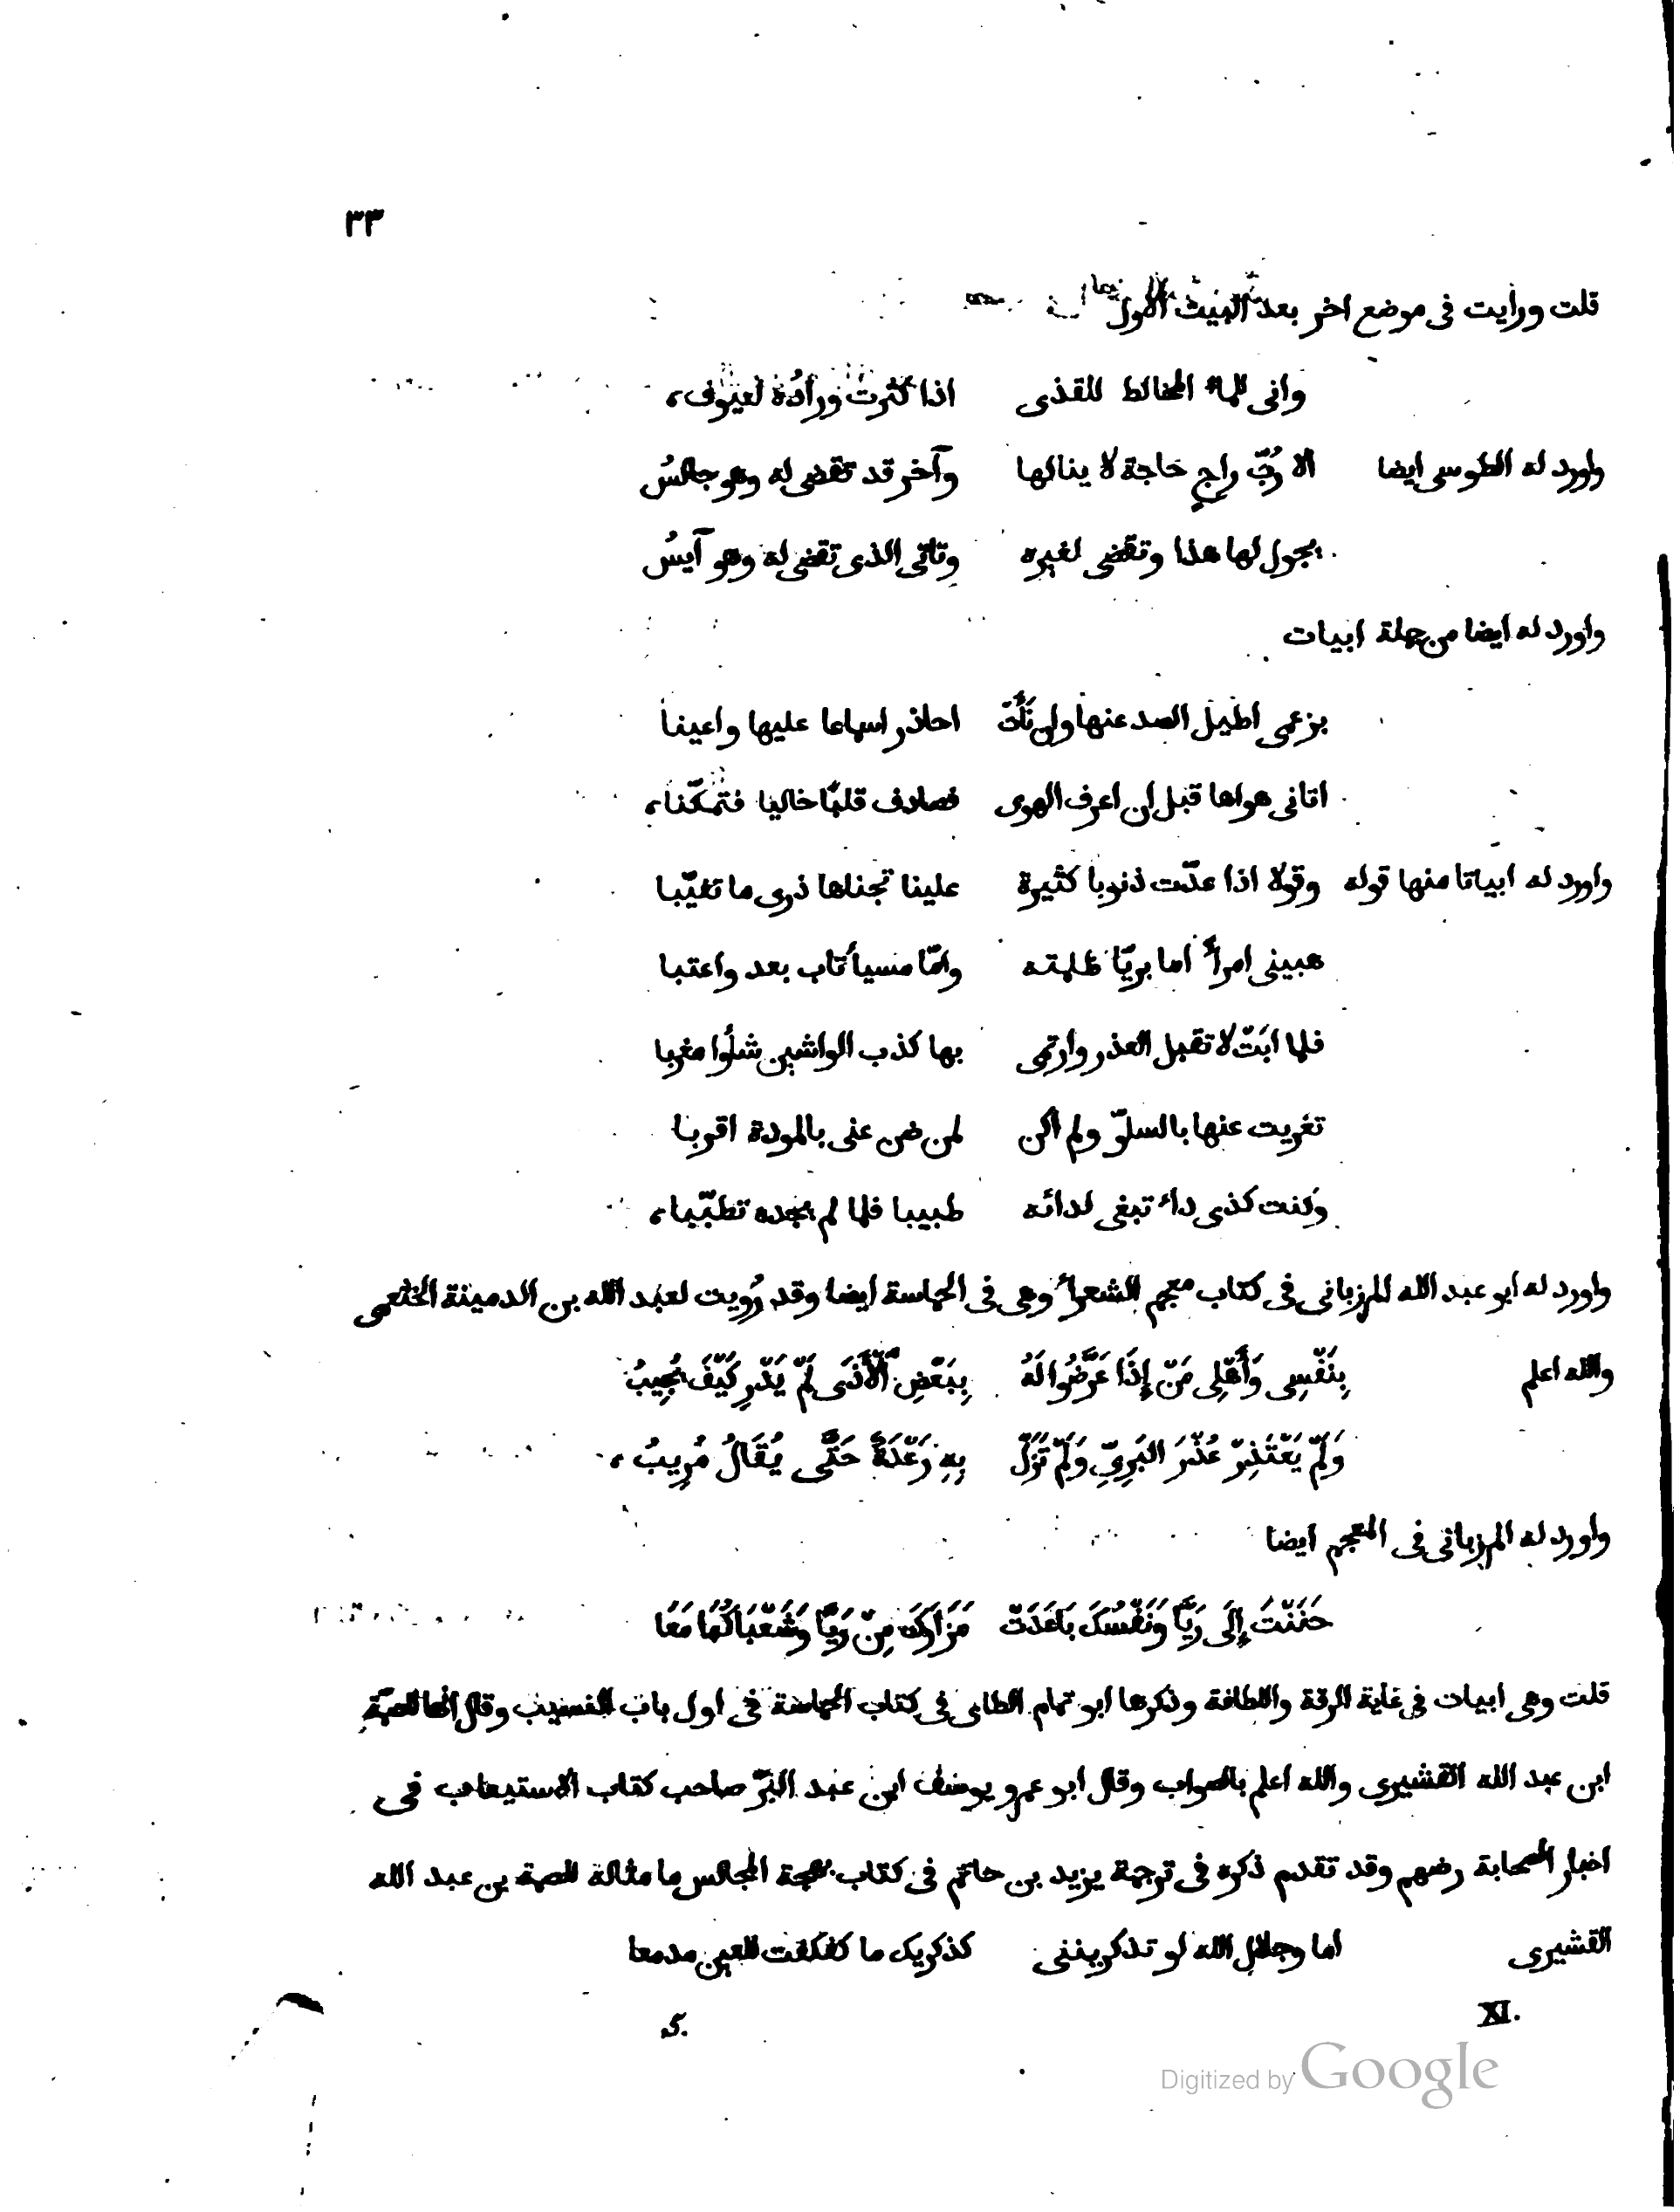 ٣٣
قلت ورايت فى موضع اخر بعد البيت الاول
وانى للماء المخالط للقذى اذا كثرت ورّاده لعيوف،
واورد له الطوسى ايضا الا رُبّ راجٍ حاجة لا ينالها وآخر قد تقضى له وهو جالسُ
يجول لها هذا وتقضى لغيره وتاتى الذى تقضى له وهو آيسُ
واورد له ايضا من جملة ابيات
بزعمى اطيل الصد عنها وان نَأَتْ احاذر اسماعا عليها واعينا
اتانى هواها قبل ان اعرف الهوى فصادف قلبًا خاليا فتمكّنا،
واورد له ابياتا منها قوله وقولا اذا عدّت ذنوبا كثيرة علينا تجناها ذرى ما تغيّبا
هبينى امرأً اما بريّا ظلمته وامّا مسيأ تاب بعد واعتبا
فلما ابَتْ لا تقبل العذر وارتمى بها كذب الواشين شأوا مغربا
تغريت عنها بالسلوّ ولم اكن لمن ضن عنى بالمودة اقربا
وكنت كذى داء تبغى لدائه طبيبا فلما لم يجده تطبّبا،
واورد له ابو عبد الله المرزبانى فى كتاب معجم الشعراء وهى فى الحماسة ايضا وقد رُويت لعبد الله بن الدمينة الخثعمى
والله اعلم بِنَفْسِى وَأَهْلِى مَنْ إِذَا عَرَّضُوا لَهُ بِبَعْضِ ٱلْأَذَى لَمْ يَدْرِ كَيْفَ يُجِيبُ
وَلَمْ يَعْتَذِرْ عُذْرَ البَرِىّ وَلَمْ تَزَلْ بِهِ رَعْدَةٌ حَتَّى يُقَالُ مُرِيبُ،
واورد له المرزبانى فى المعجم ايضا
حَنَنْتَ إِلَى رَيَّا وَنَفْسُكَ بَاعَدَتْ مَزَارَكَ مِنْ رَيَّا وَشَعْبَاكُمَا مَعَا
قلت وهى ابيات فى غاية الرقة واللطافة وذكرها ابو تمام الطاى فى كتاب الحماسة فى اول باب النسيب وقال انها للصمّة
ابن عبد الله القشيرى والله اعلم بالصواب وقال ابو عمرو يوسف ابن عبد البرّ صاحب كتاب الاستيعاب فى
اخبار الصحابة رضهم وقد تقدم ذكره فى ترجمة يزيد بن حاتم فى كتاب بهجة المجالس ما مثاله للصمة بن عبد الله
القشيرى اما وجلال الله لو تذكريننى كذكريك ما كفكفت للعين مدمعا
XI. 5.
Digitized by Google